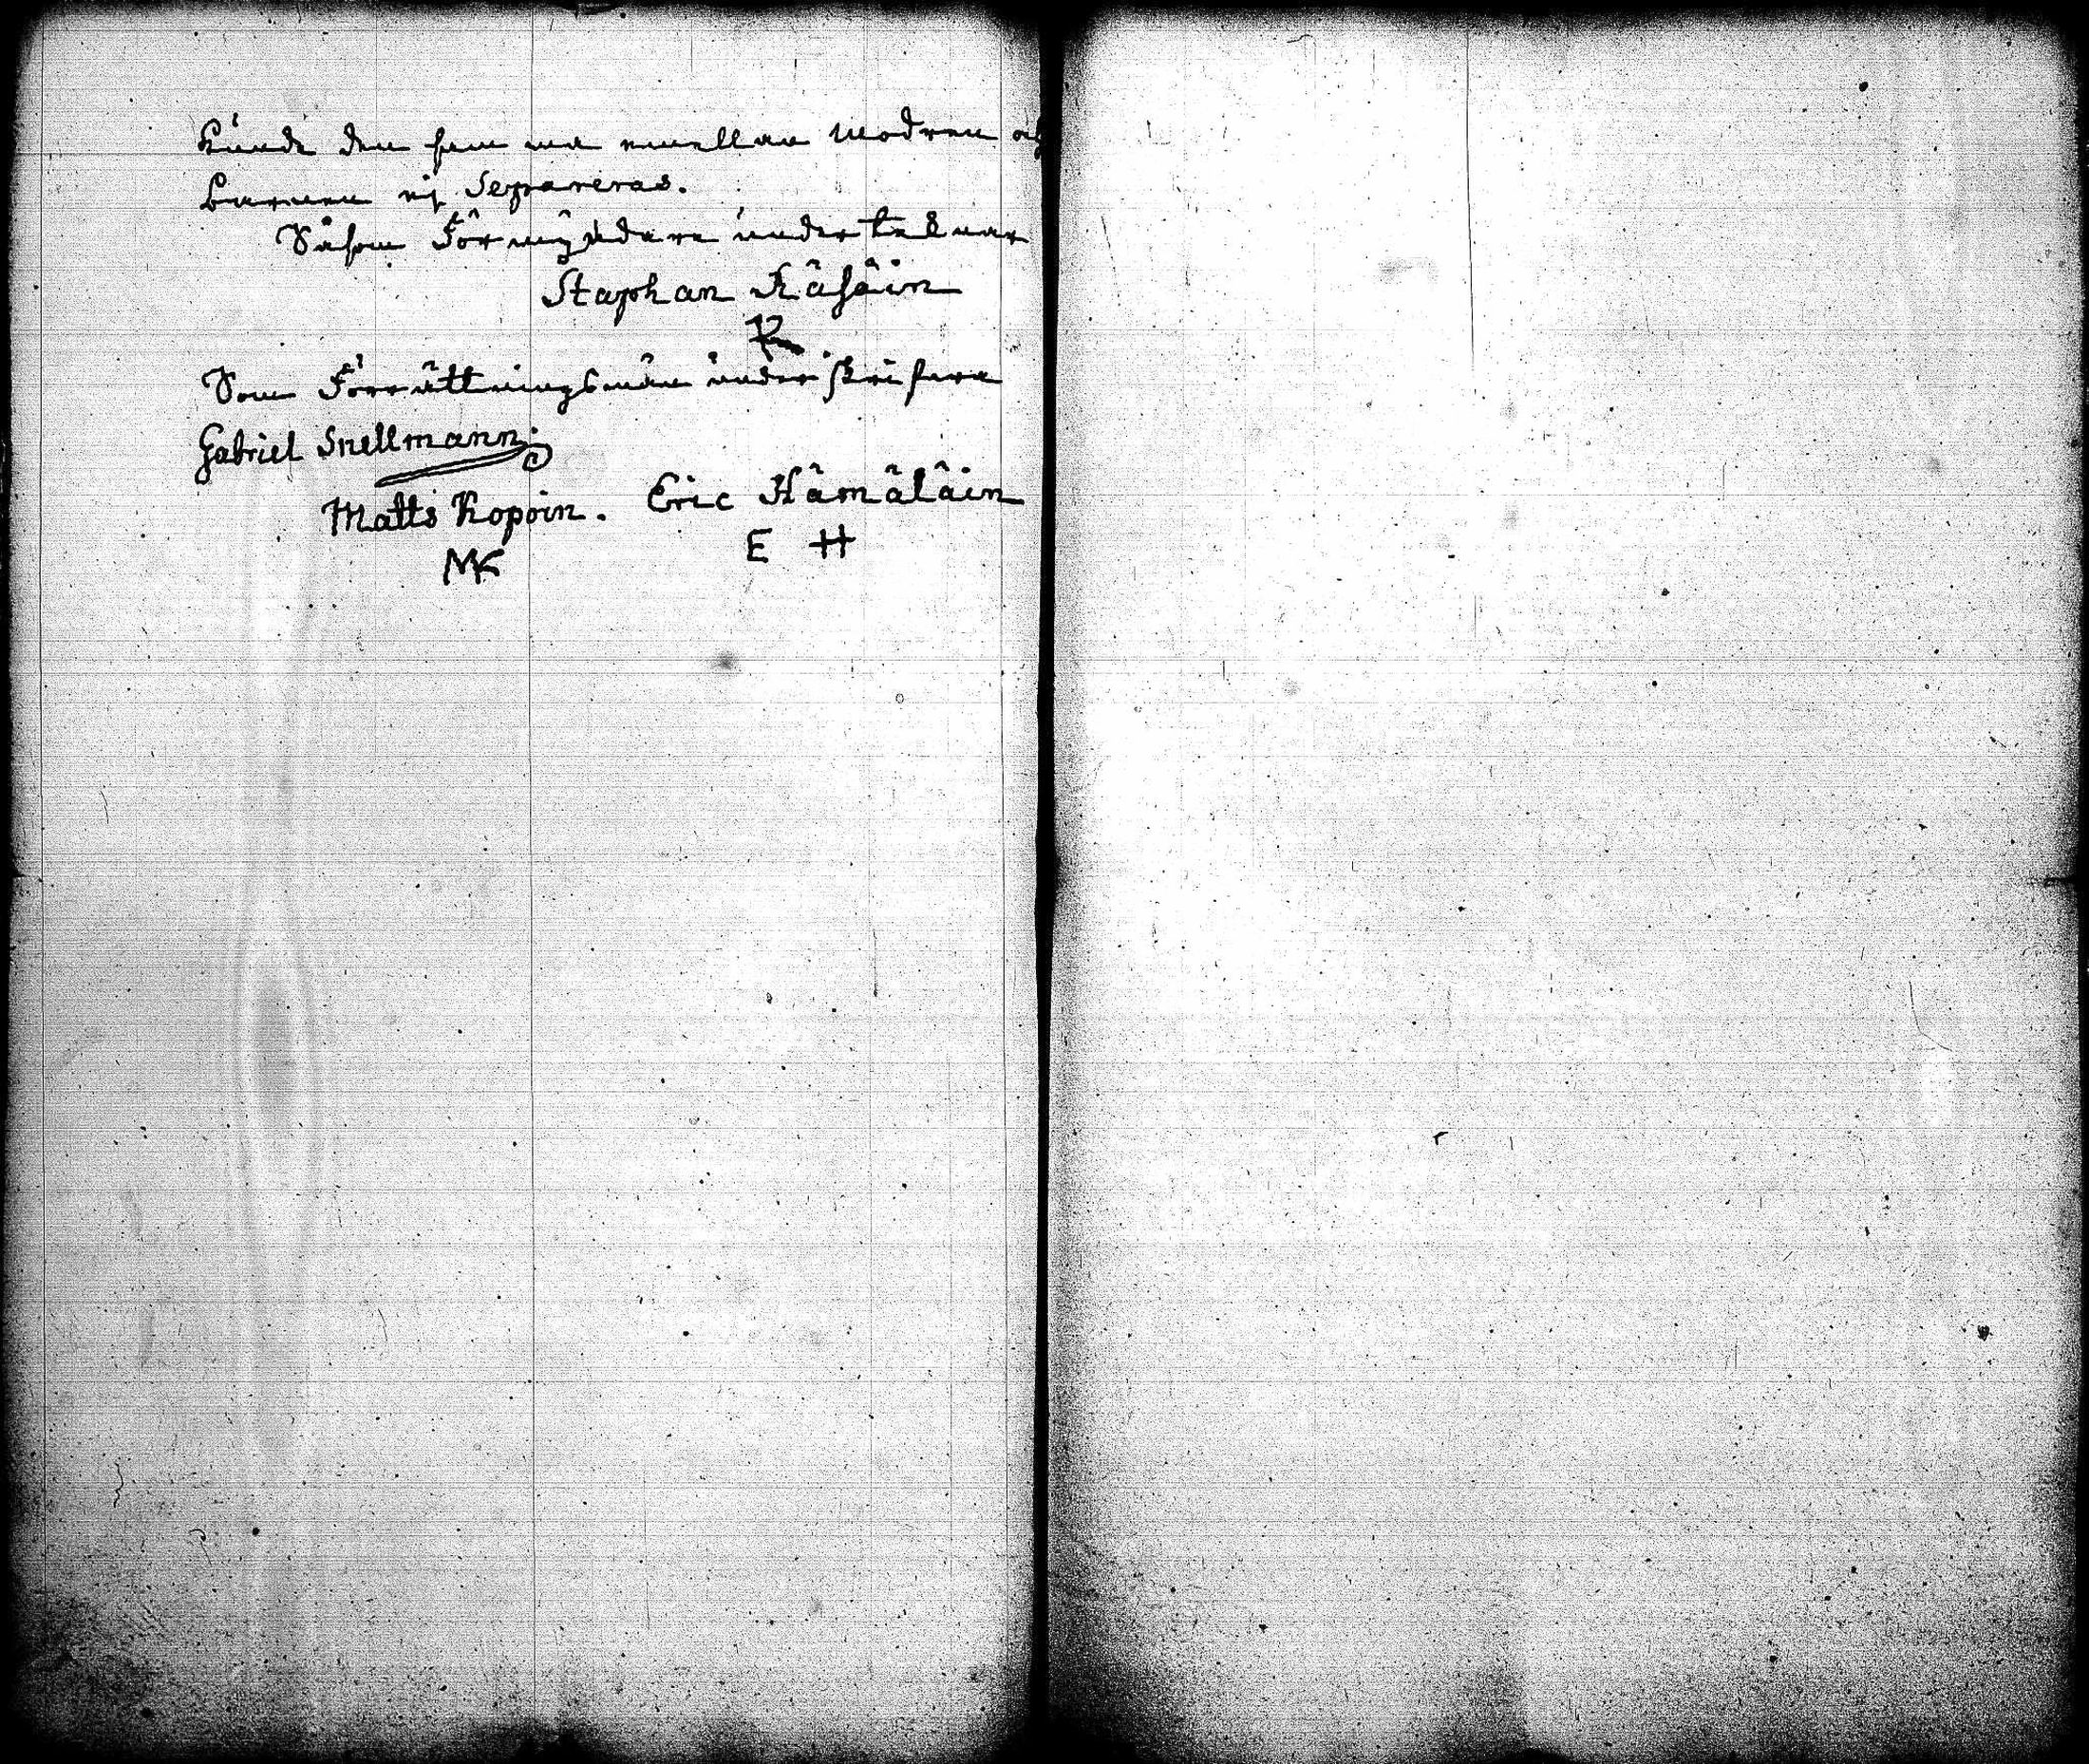 kunde den sam ma emellan Modren och
barnen ej Separeras.
Såsom Förmyndare undertecknar
Staphan Räsäin
R
Som Förrättningsmän underskrifva
Gabriel Snellmann.
Matts Kopoin. Eric Hämäläin
MK E H